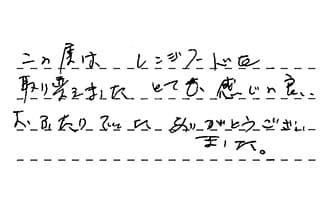 この度は レンジフードを
取り替えました とても 感じの良い
おふたりでした ありがとうござい
ました。